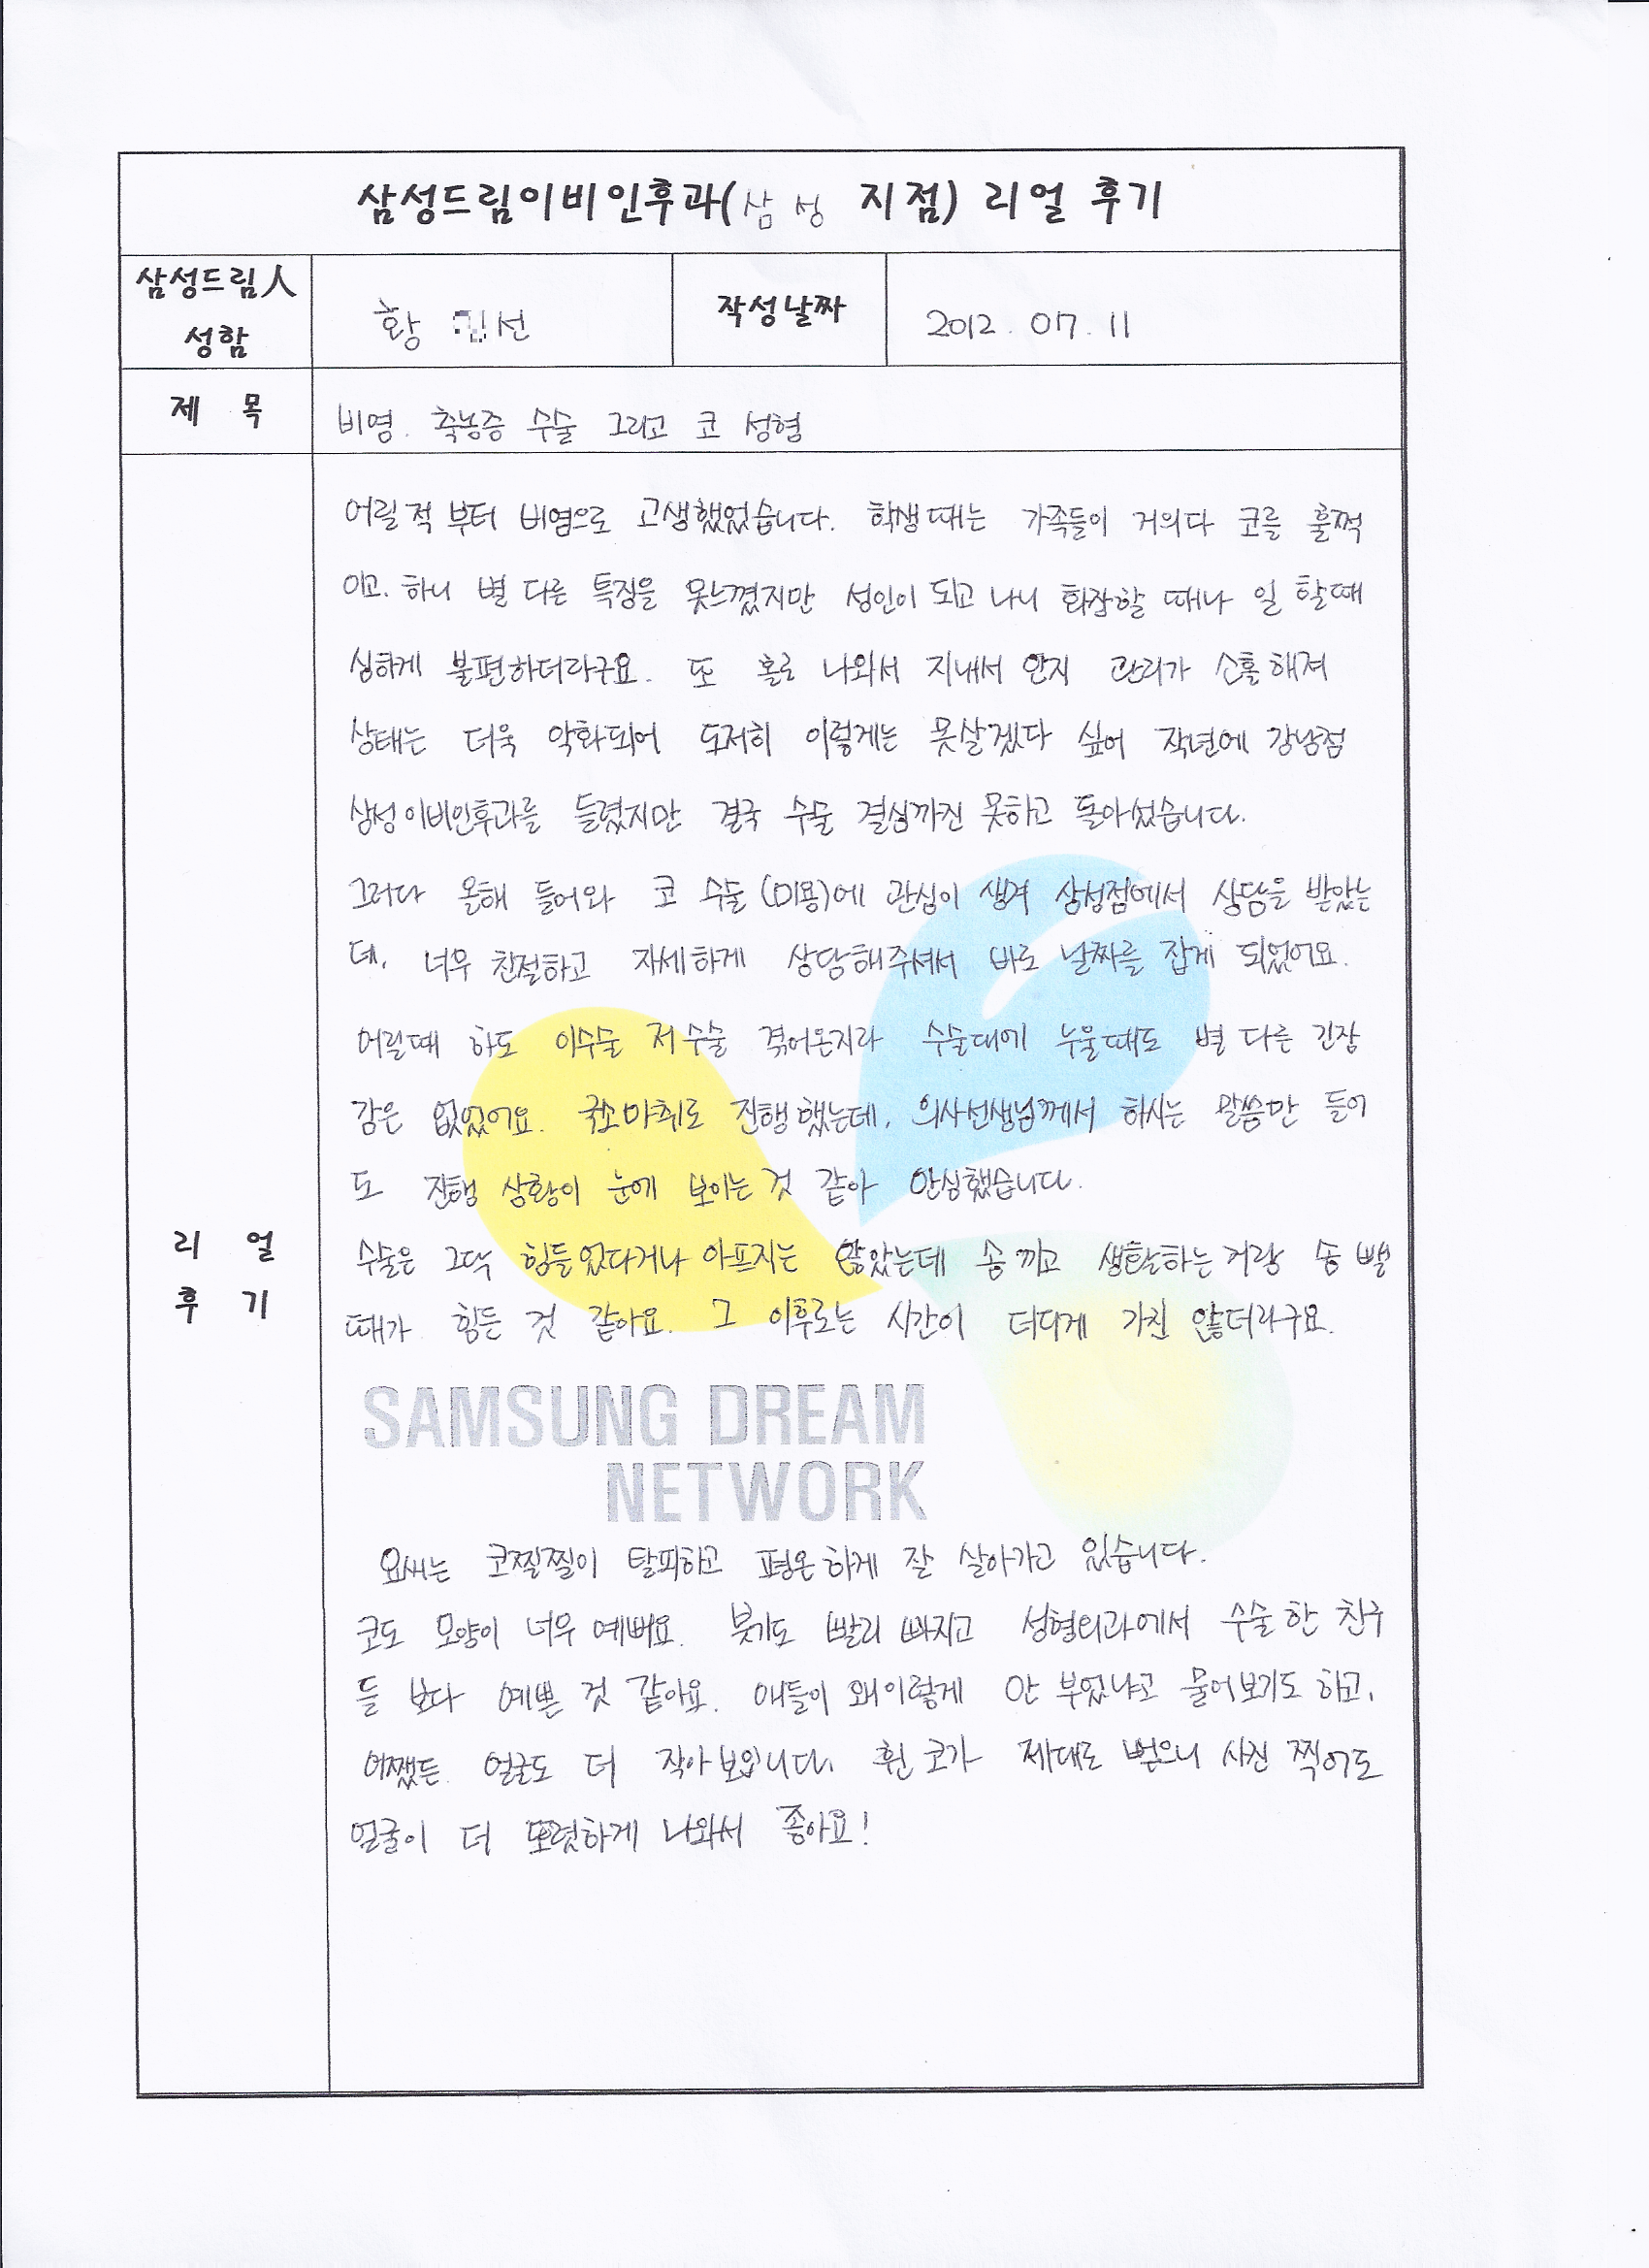 삼성드림이비인후과(삼성 지점) 리얼 후기
삼성드림人
성함
황 선
작성날짜
2012. 07. 11
제 목
비염. 축농증 수술 그리고 코 성형
어릴적 부터 비염으로 고생했었습니다. 학생때는 가족들이 거의다 코를 훌쩍
이고. 하니 별 다른 특징을 못느꼈지만 성인이 되고 나니 화장할 때나 일 할때
심하게 불편하더라구요. 또 홀로 나와서 지내서 인지 관리가 소홀해져
상태는 더욱 악화되어 도저히 이렇게는 못살겠다 싶어 작년에 강남점
삼성이비인후과를 들렸지만 결국 수술 결심까진 못하고 돌아섰습니다.
그러다 올해 들어와 코 수술(미용)에 관심이 생겨 삼성점에서 상담을 받았는
데. 너무 친절하고 자세하게 상담해주셔서 바로 날짜를 잡게 되었어요.
어릴때 하도 이수술 저수술 겪어온지라 수술대에 누울때도 별 다른 긴장
감은 없었어요. 국소마취로 진행했는데, 의사선생님께서 하시는 말씀만 들어
도 진행 상황이 눈에 보이는 것 같아 안심했습니다.
수술은 그닥 힘들었다거나 아프지는 않았는데 솜 끼고 생활하는거랑 솜 뺄
때가 힘든 것 같아요. 그 이후로는 시간이 더디게 가진 않더라구요.
SAMSUNG DREAM
NETWORK
요새는 코찔찔이 탈피하고 평온하게 잘 살아가고 있습니다.
코도 모양이 너무 예뻐요. 붓기도 빨리 빠지고 성형외과에서 수술한 친구
들 보다 예쁜 것 같아요. 애들이 왜이렇게 안 부었냐고 물어보기도 하고,
어쨌든 얼굴도 더 작아보입니다. 휜 코가 제대로 뻗으니 사진 찍어도
얼굴이 더 또렷하게 나와서 좋아요!
리 얼
후 기